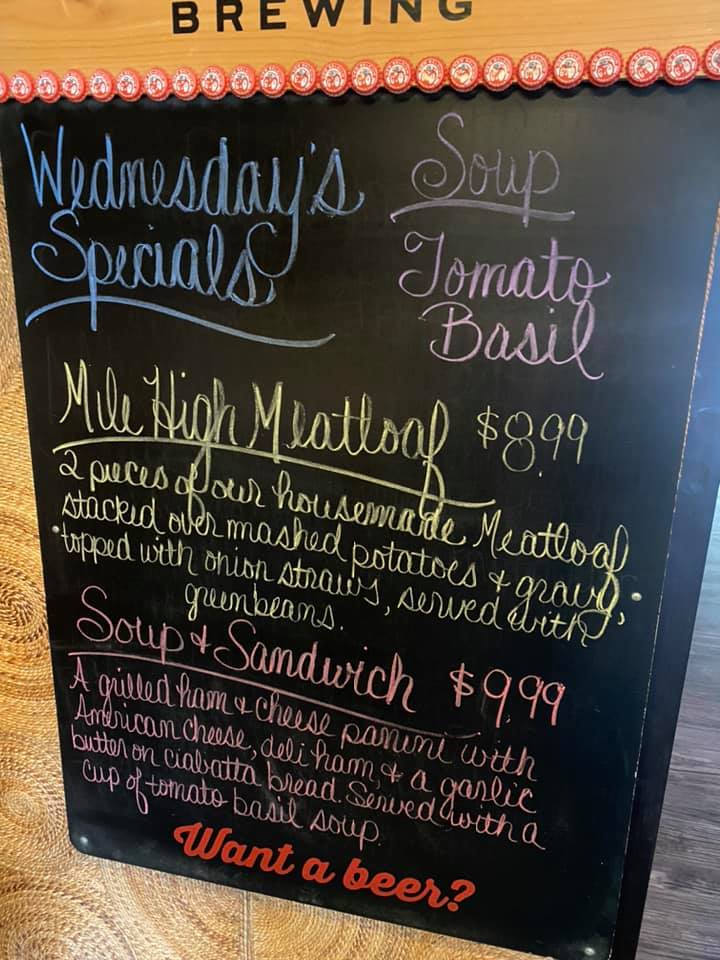 BREWING
Wednesday's
Specials
Soup
Tomato
Basil
Mile High Meatloaf $8.99
2 pieces of our housemade Meatloaf
stacked over mashed potatoes & gravy,
topped with onion straws, served with
greenbeans.
Soup & Sandwich $9.99
A grilled ham & cheese panini with
American cheese, deli ham, & a garlic
butter on ciabatta bread. Served with a
cup of tomato basil soup.
Want a beer?